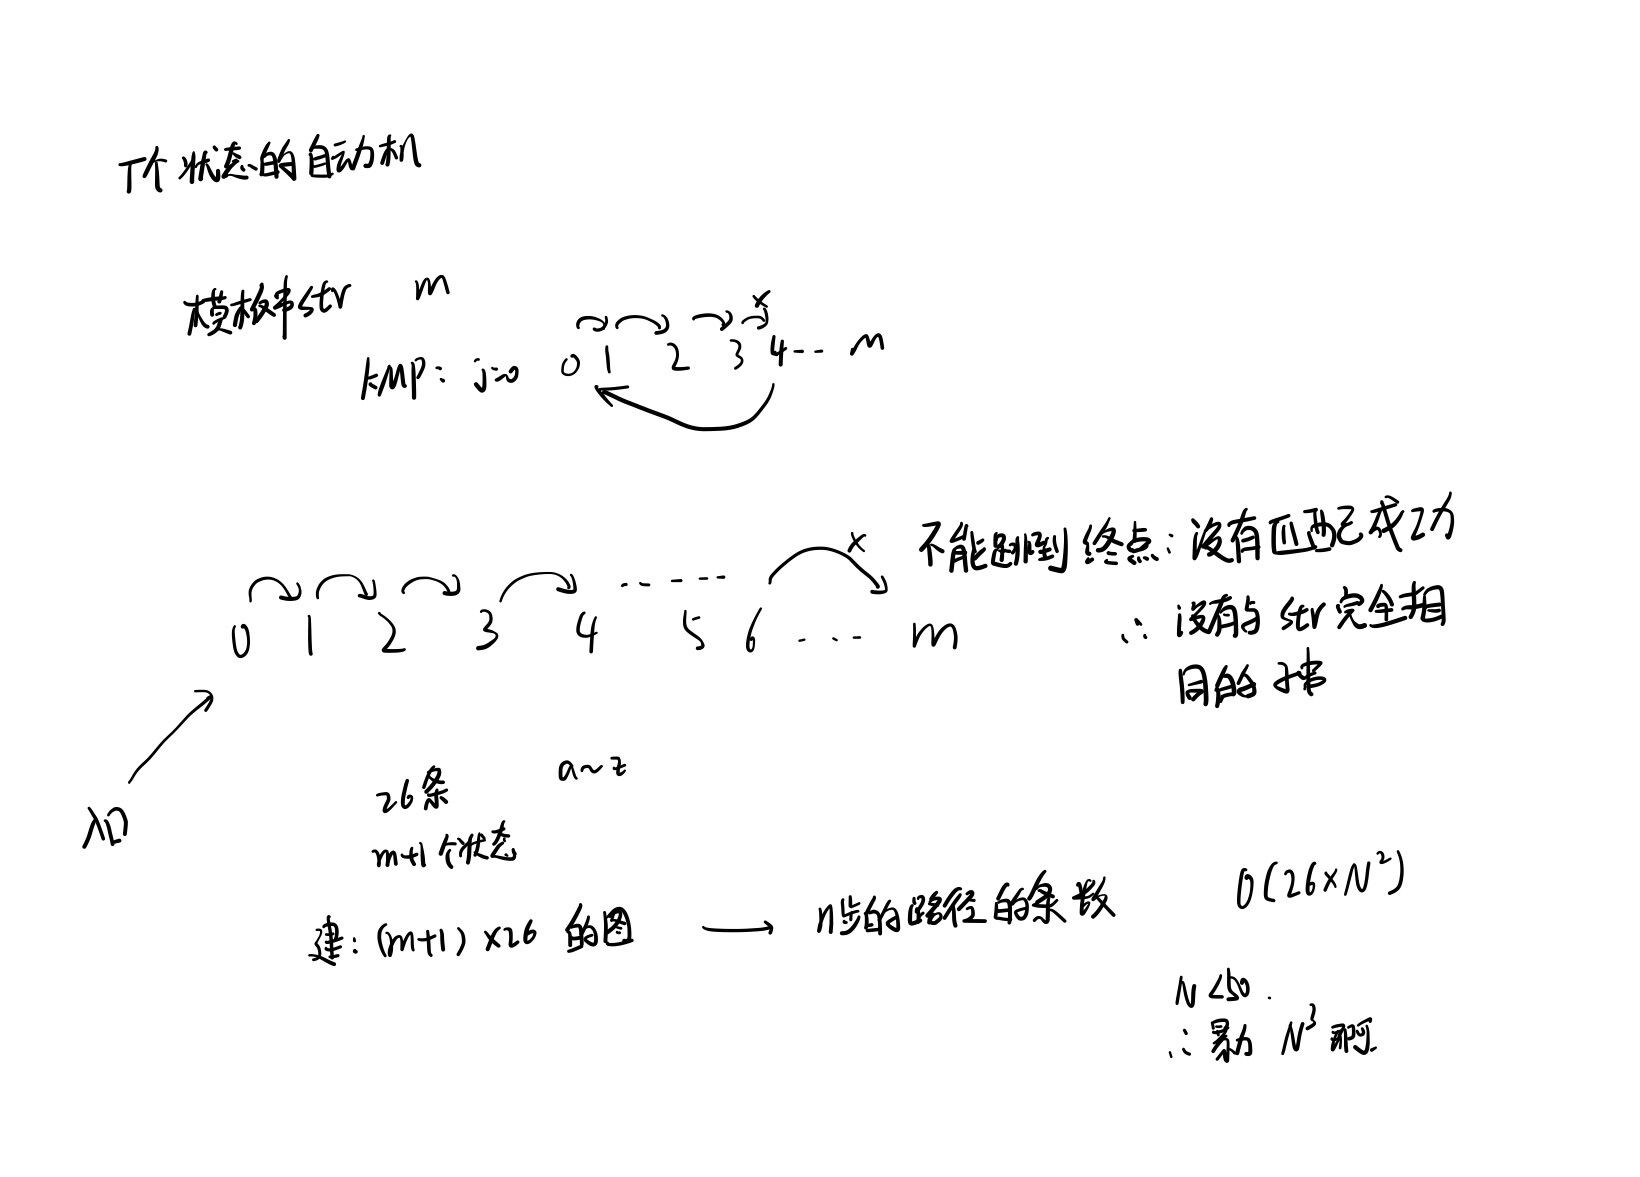 T个状态的自动机
模板串str m
x
KMP: j=0 0 1 2 3 4 ... m
x
不能跳到终点: 没有匹配成功
0 1 2 3 4 5 6 ... m
∴ 没有与 str 完全相
同的子串
入口
26条 a~z
m+1个状态
建: (m+1)×26 的图 → n步的路径的条数 O(26×N²)
N<50.
∴ 暴力 N³ 啊